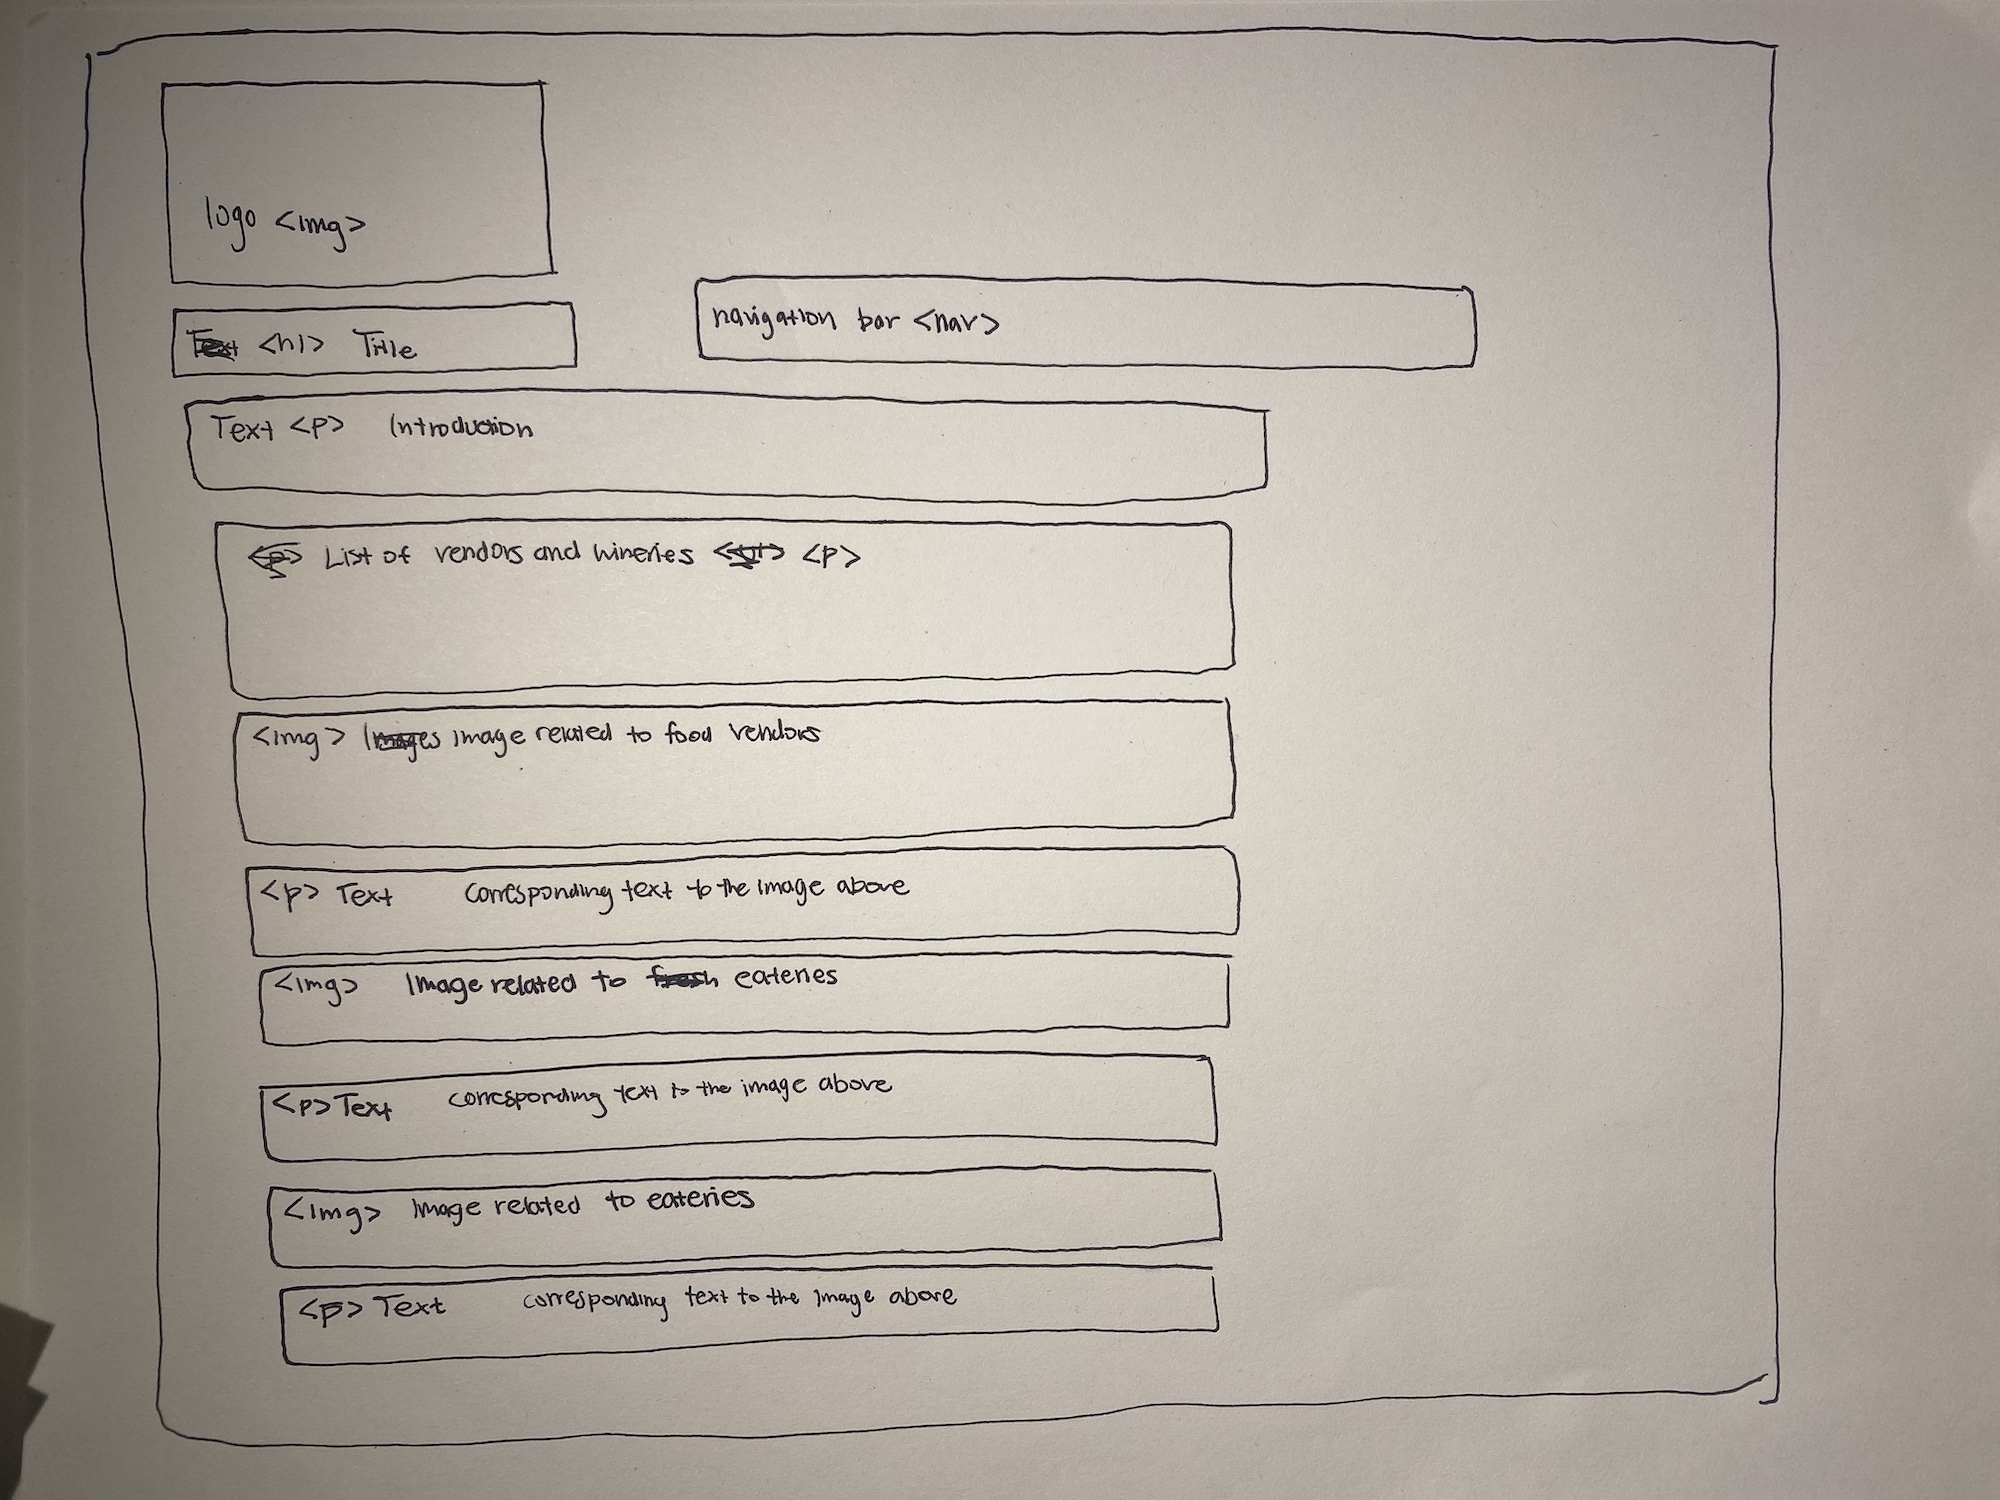 logo <img>
Text <h1> Title
navigation bar <nav>
Text <p> Introduction
<p> List of vendors and wineries <p>
<img> Images image related to food vendors
<p> Text corresponding text to the image above
<img> Image related to fresh eateries
<p> Text corresponding text to the image above
<img> Image related to eateries
<p> Text corresponding text to the image above